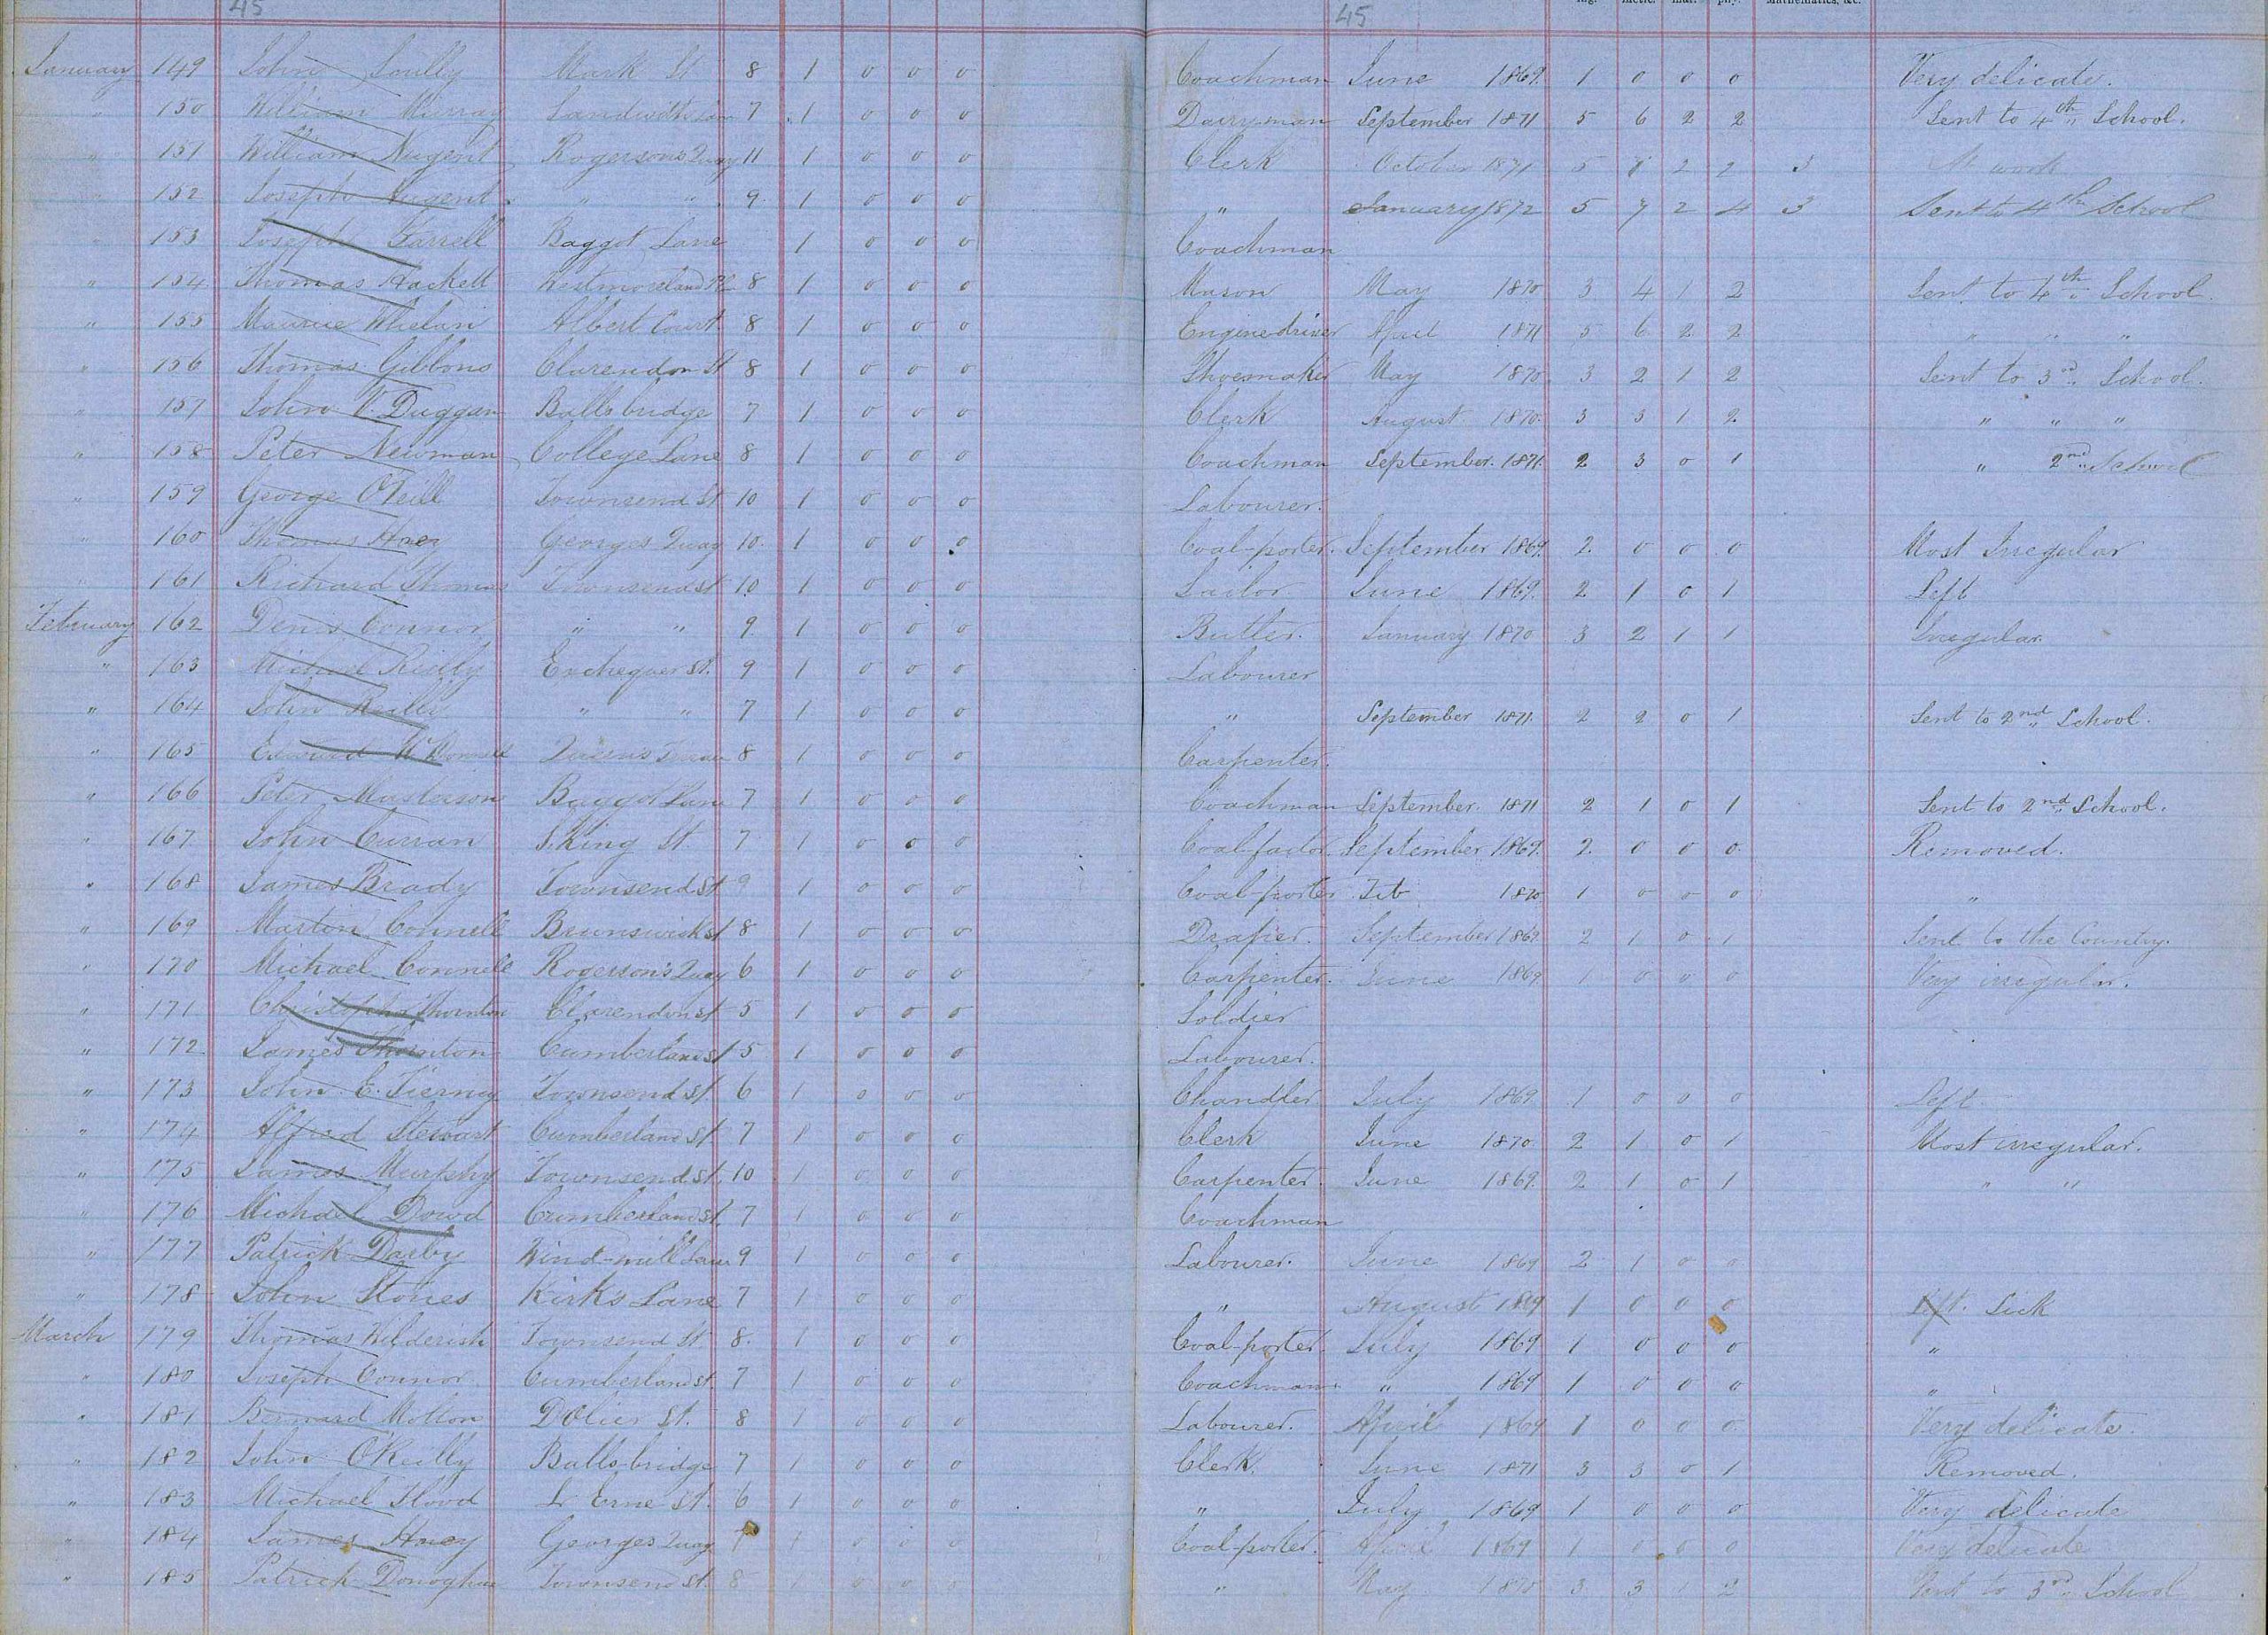 45 45
January 149 John Scully Mark St 8 1 0 0 0 Coachman June 1869. 1 0 0 0 Very delicate.
" 150 William Murray Sandwith Lane 7 1 0 0 0 Dairyman September 1871 5 6 2 2 Sent to 4th School.
" 151 William Nugent Rogersons Quay 11 1 0 0 0 Clerk October 1871 5 7 2 2 3 At work
" 152 Joseph Nugent " " 9 1 0 0 0 " January 1872 5 7 2 4 3 Sent to 4th School
" 153 Joseph Farrell Baggot Lane 1 0 0 0 Coachman
" 154 Thomas Hackett Westmoreland Pl 8 1 0 0 0 Mason May 1870 3 4 1 2 Sent to 4th School.
" 155 Maurice Whelan Albert Court 8 1 0 0 0 Engine driver April 1871 5 6 2 2 " " "
" 156 Thomas Gibbons Clarendon St 8 1 0 0 0 Shoemaker May 1870. 3 2 1 2 Sent to 3rd School.
" 157 John V. Duggan Ballsbridge 7 1 0 0 0 Clerk August 1870. 3 3 1 2 " " "
" 158 Peter Newman College Lane 8 1 0 0 0 Coachman September. 1871. 2 3 0 1 " 2nd School
" 159 George O'Neill Townsend St 10 1 0 0 0 Labourer.
" 160 Thomas Hoey Georges Quay 10. 1 0 0 0 Coal-porter. September 1869. 2. 0 0 0 Most Irregular
" 161 Richard Thomas Townsend st 10 1 0 0 0 Sailor June 1869. 2 1 0 1 Left
February 162 Denis Connor " " 9. 1 0 0 0 Butler. January 1870 3 2 1 1 Irregular.
" 163 Michael Reilly Exchequer St. 9 1 0 0 0 Labourer
" 164 John Reilly " " 7 1 0 0 0 " September 1871. 2 2 0 1 Sent to 2nd School.
" 165 Edward Queens 8 1 0 0 0 Carpenter.
" 166 Peter Masterson Baggot Lane 7 1 0 0 0 Coachman September. 1871 2 1 0 1 Sent to 2nd School.
" 167 John Curran S. King St. 7 1 0 0 0 Coal-factor. September 1869. 2. 0 0 0. Removed.
" 168 James Brady Townsend St 9 1 0 0 0 Coal-porter Feb 1870 1 0 0 0 "
" 169 Martin Connell Brunswick st 8 1 0 0 0 Draper. September 1869. 2 1 0 1 Sent to the Country.
" 170 Michael Connell Rogerson's Quay 6 1 0 0 0 Carpenter. June 1869 1 0 0 0 Very irregular.
" 171 Christopher Thornton Clarendon st 5 1 0 0 0 Soldier
" 172 James Thornton Cumberland st 5 1 0 0 0 Labourer.
" 173 John E. Tierney Townsend St 6 1 0 0 0 Chandler. July 1869 1 0 0 0 Left
" 174 Alfred Stewart Cumberland St 7 1 0 0 0 Clerk June 1870 2 1 0 1 Most irregular.
" 175 James Murphy Townsend St. 10 1 0 0 0 Carpenter. June 1869. 2 1 0 1 " "
" 176 Michael Dowd Cumberland st. 7 1 0 0 0 Coachman
" 177 Patrick Darby Wind-mill Lane 9 1 0 0 0 Labourer. June 1869 2 1 0 0
" 178 John Stones Kirks Lane 7 1 0 0 0 " August 1869 1 0 0 0 Left. Sick
March 179 Thomas Townsend St. 8. 1 0 0 0 Coal-porter. July 1869 1 0 0 0 "
" 180 Joseph Connor Cumberland st. 7 1 0 0 0 Coachman " 1869 1 0 0 0 "
" 181 Bernard Molton D'Olier St. 8 1 0 0 0 Labourer. April 1869 1 0 0 0. Very delicate.
" 182 John O'Reilly Balls-bridge 7 1 0 0 0 Clerk. June 1871 3 3 0 1 Removed.
" 183 Michael Flood Lr Erne St. 6 1 0 0 0 " July 1869 1 0 0 0 Very delicate
" 184 James Hoey Georges Quay 7 1 0 0 0 Coal-porter. April 1869 1 0 0 0 Very delicate
" 185 Patrick Donoghue Townsend St. 8 1 0 0 0 " May 1870 3 3 1 2 Sent to 3rd School